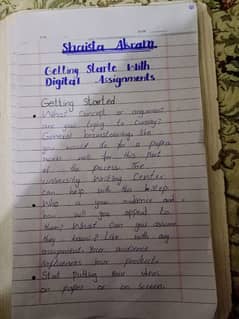 Shaista Akram
Getting Starte With
Digital Assignments
Getting Started
• What Concept or argument
are you trying to convey?
General brainstorming like
you would do for a paper
works well for this part
of the process. The
University Writing Center
can help with this step.
• Who is your audience and
how will you appeal to
them? What Can you assume
they know? Like with any
assignment your audience
influences your products
• Start putting your ideas
on paper or on screen